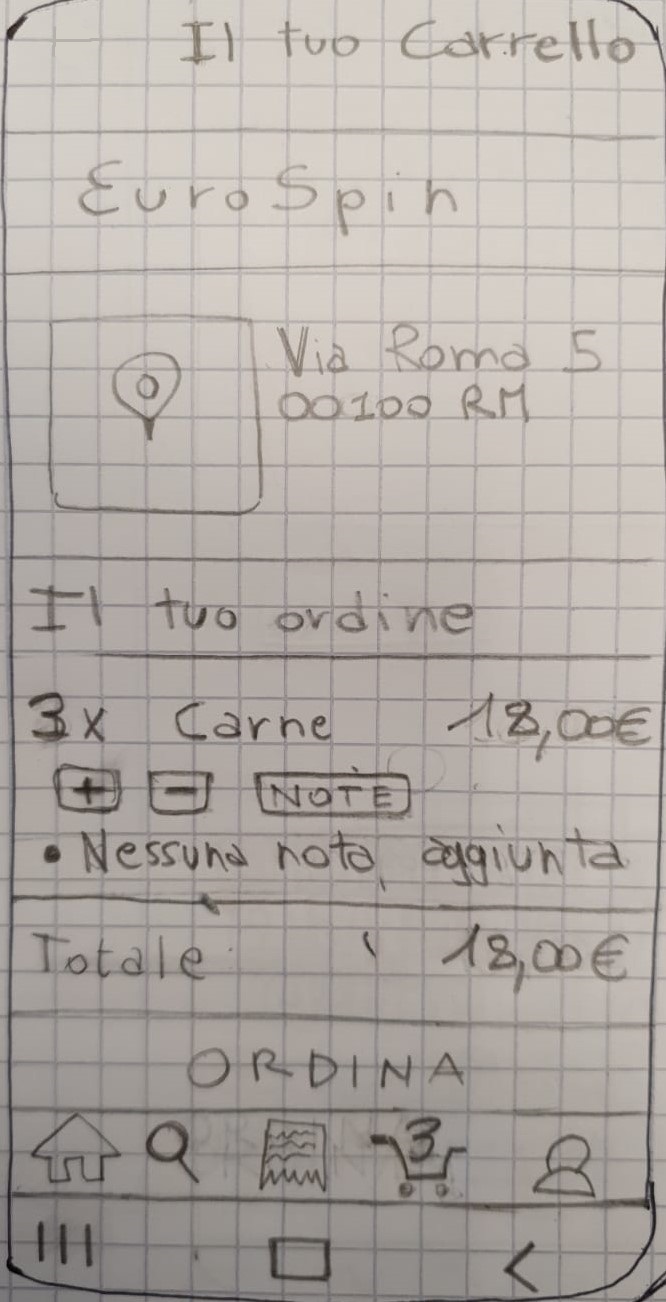 Il tuo Carrello
EuroSpin
Via Roma 5
00100 RM
Il tuo ordine
3x Carne 18,00€
+ - NOTE
• Nessuna nota aggiunta
Totale 18,00€
ORDINA
3